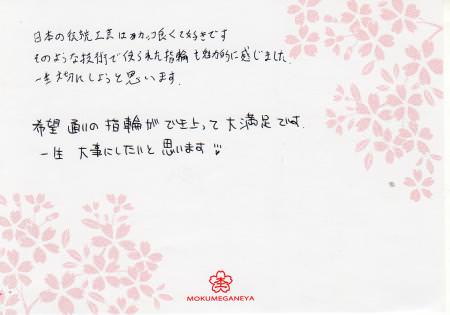 日本の伝統工芸はカッコ良くて好きです
そのような技術で作られた指輪も魅力的に感じました。
一生大切にしようと思います。
希望通りの指輪ができ上って大満足です。
一生大事にしたいと思います
MOKUMEGANEYA